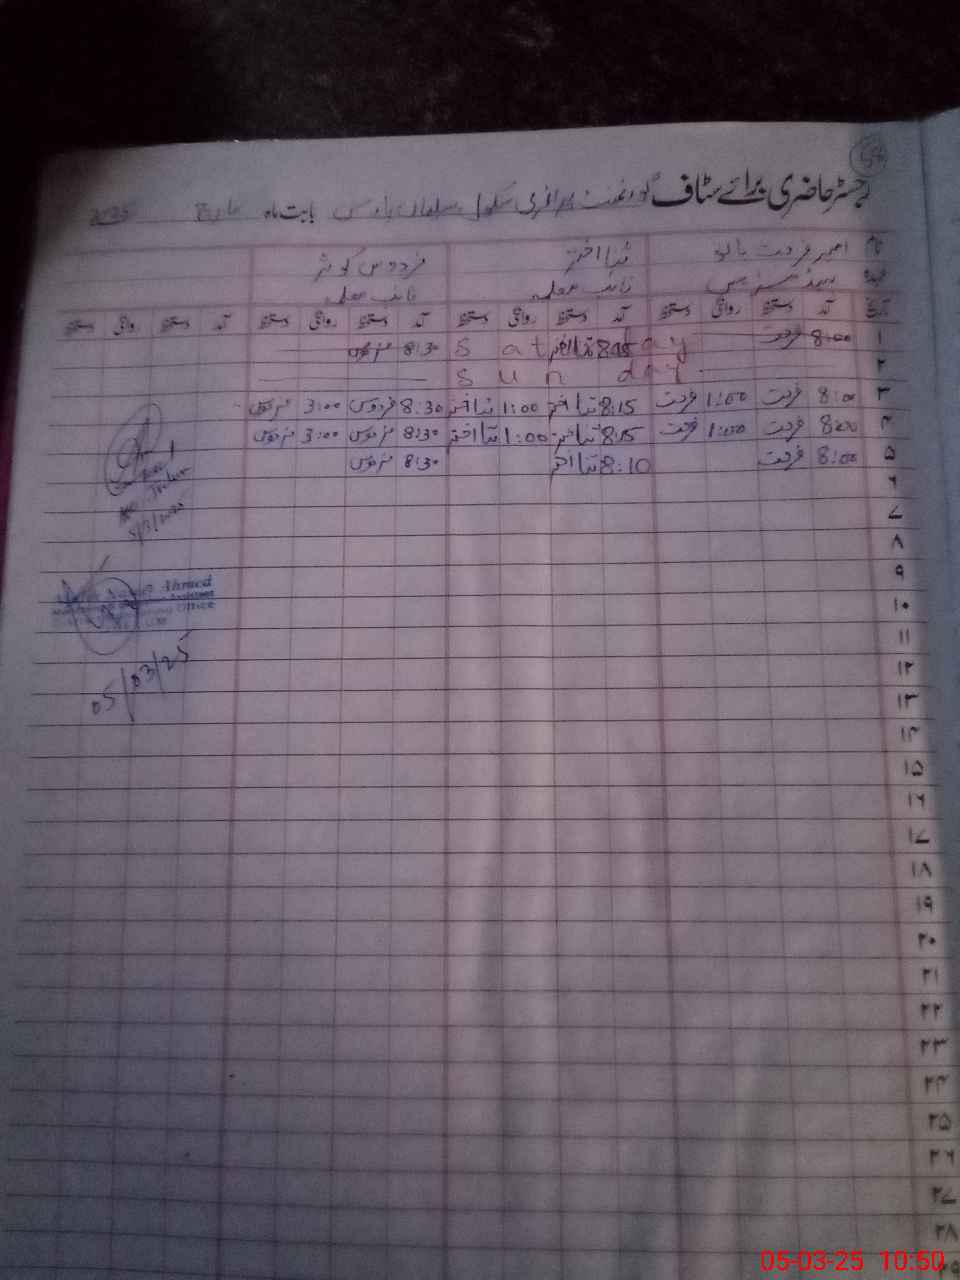 54
رجسٹر حاضری برائے سٹاف گورنمنٹ پرائمری سکول بابت ماہ مارچ 2025
نام امبر فرحت بانو ثنا اختر فردوس کوثر
عہدہ ہیڈ مسٹریس نائب معلمہ نائب معلمہ
تاریخ آمد دستخط روانگی دستخط آمد دستخط روانگی دستخط آمد دستخط روانگی دستخط آمد دستخط روانگی دستخط
۱ 8:00 فرحت Saturday ثنا اختر 8:30 فردوس
۲ Sunday
۳ 8:00 فرحت 1:00 فرحت 8:15 ثنا اختر 1:00 ثنا اختر 8:30 فردوس 3:00 فردوس
۴ 8:00 فرحت 1:00 فرحت 8:15 ثنا اختر 1:00 ثنا اختر 8:30 فردوس 3:00 فردوس
۵ 8:00 فرحت 8:10 ثنا اختر 8:30 فردوس
۶
۷
۸
۹
۱۰
۱۱
۱۲
۱۳
۱۴
۱۵
۱۶
۱۷
۱۸
۱۹
۲۰
۲۱
۲۲
۲۳
۲۴
۲۵
۲۶
۲۷
۲۸
۲۹
5/3/2025
Ahmed
Assistant
Office
05/03/25
05-03-25 10:50